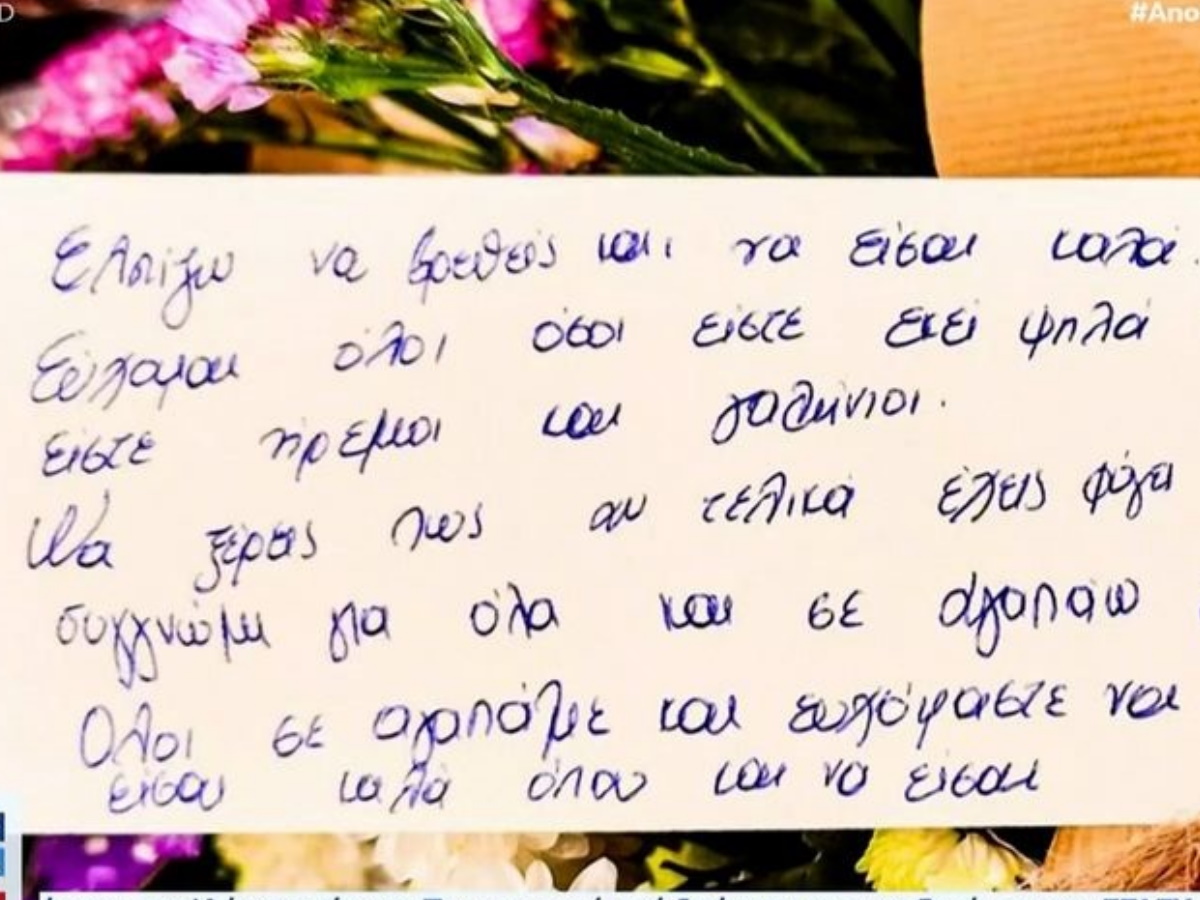 #Ano
Ελπίζω να βρεθείς και να είσαι καλά.
Εύχομαι όλοι όσοι είστε εκεί ψηλά
είστε ήρεμοι και γαλήνιοι.
Να ξέρεις πως αν τελικά έχεις φύγει
συγγνώμη για όλα και σε αγαπάω
Όλοι σε αγαπάμε και ευχόμαστε να
είσαι καλά όπου και να είσαι